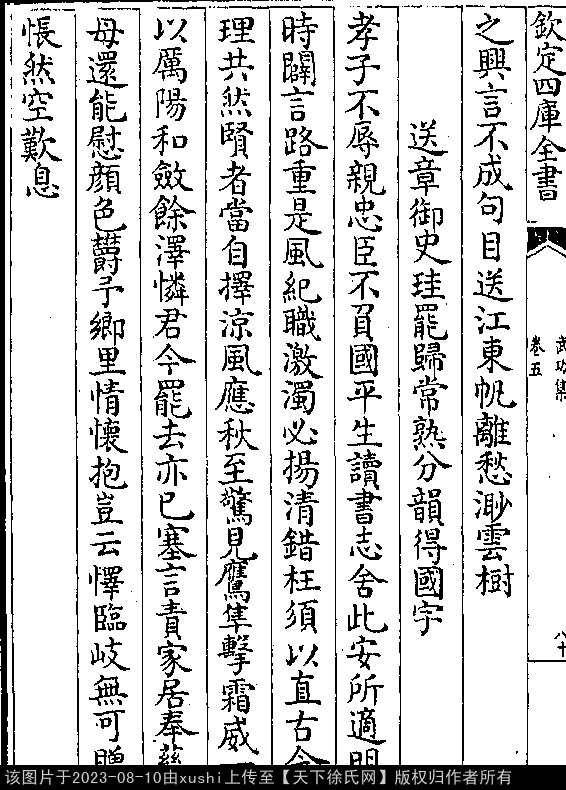 欽定四庫全書
武功集
卷五
八十
之興言不成句目送江東帆離愁渺雲樹
送章御史珪罷歸常熟分韻得國字
孝子不辱親忠臣不負國平生讀書志舍此安所適明
時闢言路重是風紀職激濁必揚清錯枉須以直古今
理共然賢者當自擇涼風應秋至驚見鷹隼擊霜威一
以厲陽和斂餘澤憐君今罷去亦已塞言責家居奉慈
母還能慰顏色欝予鄉里情懷抱豈云懌臨岐無可贈
悵然空歎息
该图片于2023-08-10由xushi上传至【天下徐氏网】版权归作者所有